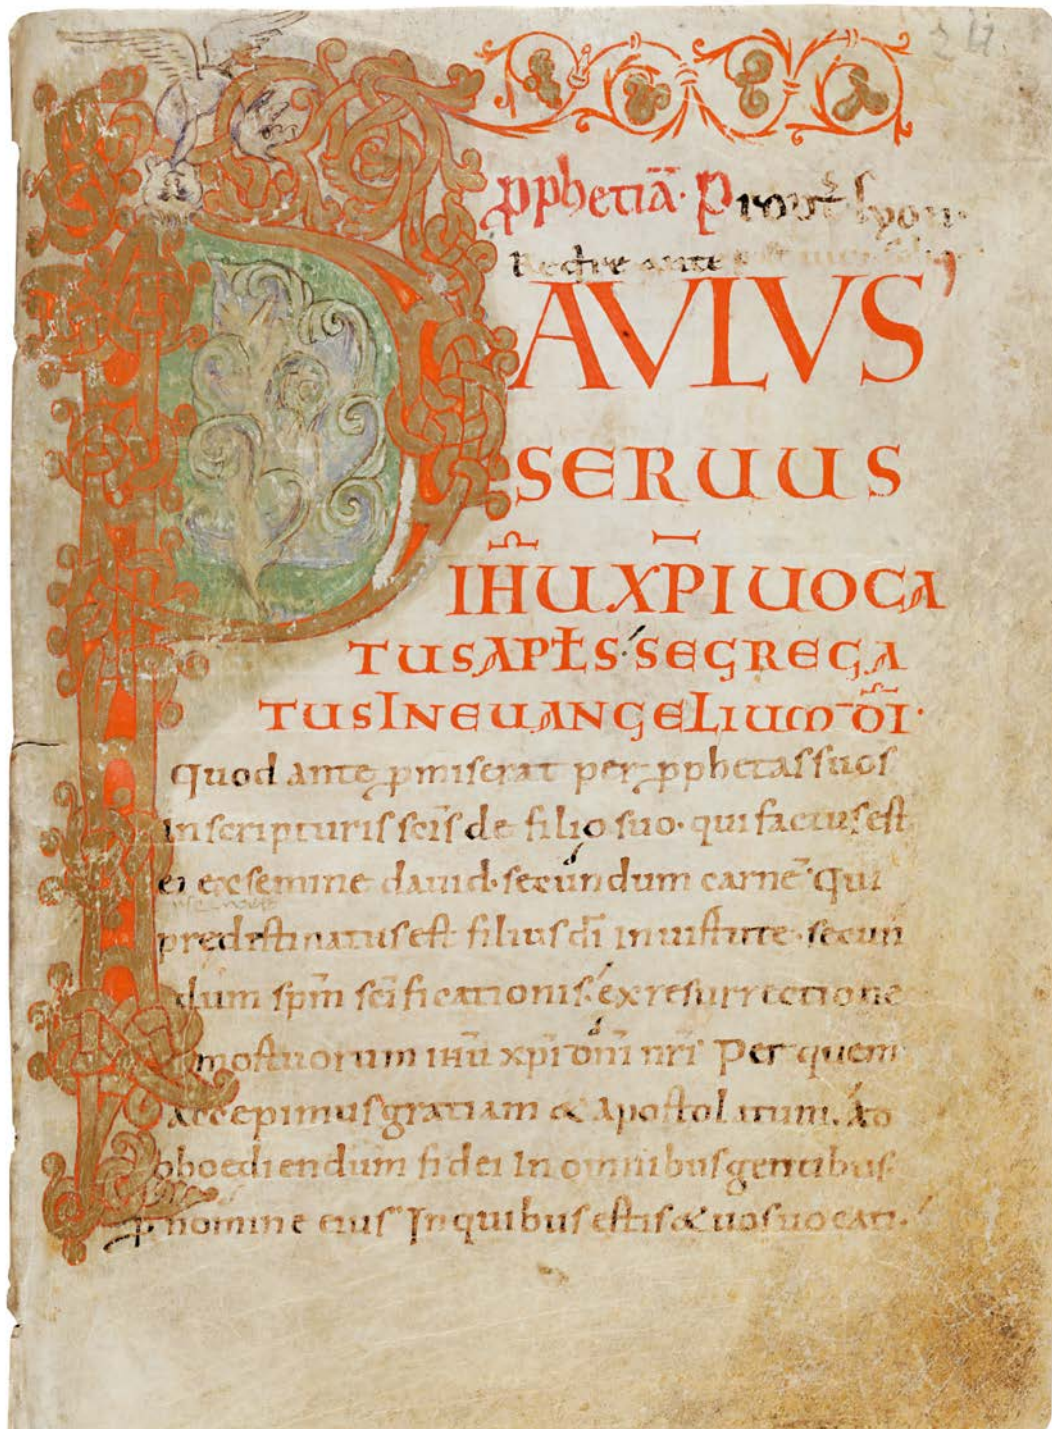 24
ꝓphetiā· P
Recdīe ante
PAVLVS
SERUUS
IH̄U XP̄I UOCA
TUS APŁS· SEGREGA
TUS IN EUANGELIUM D̄I·
Quod ante ꝓmiserat per ꝓphetas suos
In scripturis sc̄is de filio suo· qui factus est
ei ex semine dauid· secundum carnē· Qui
predestinatus est filius dī in uirtute· secun
dum sp̄m sc̄ificationis· ex resurrectione
mortuorum ihū xp̄i dn̄i nr̄i· Per quem
accepimus gratiam & apostolatum· Ad
oboediendum fidei In omnibus gentibus·
ꝓ nomine eius· In quibus estis & uos uocati·